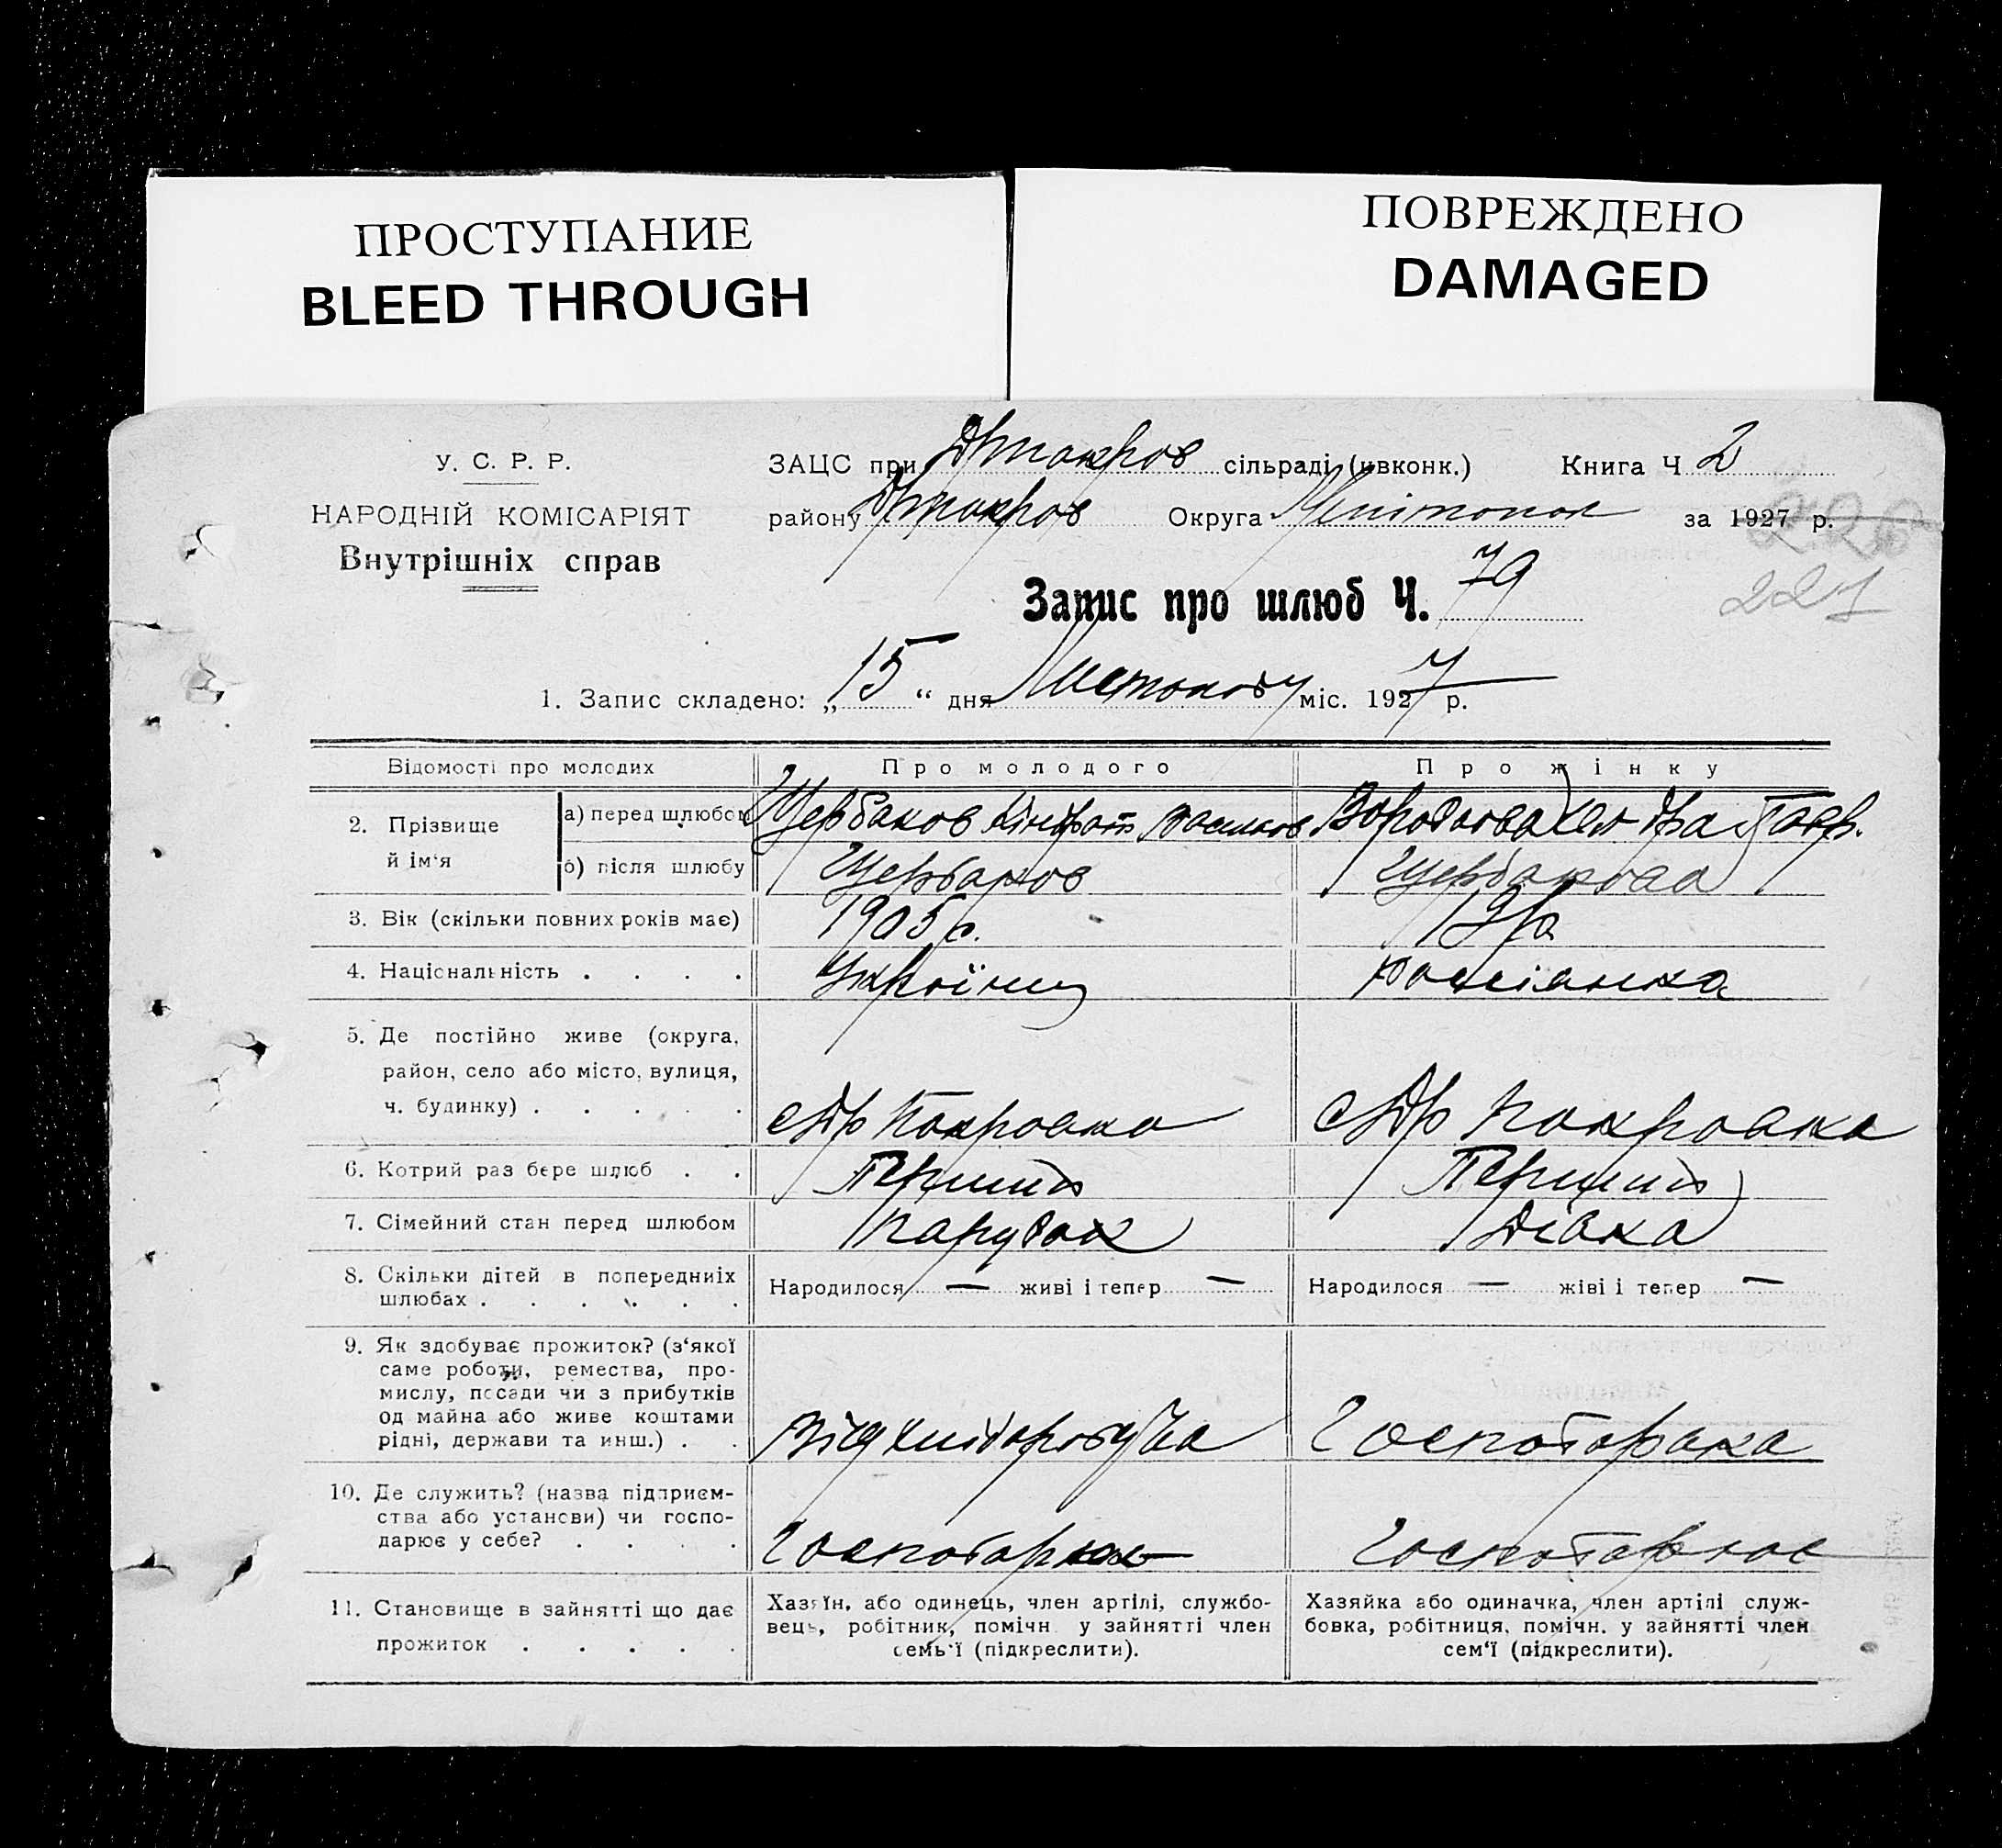 ПРОСТУПАНИЕ
BLEED THROUGH
ПОВРЕЖДЕНО
DAMAGED
У. С. Р. Р.
НАРОДНІЙ КОМІСАРІЯТ
Внутрішніх справ
ЗАЦС при сільраді (ивконк.) Книга Ч 2
району Округа за 1927 р.
220
221
Запис про шлюб Ч. 79
1. Запис складено: „15“ дня Листопаду міс. 1927 р.
Відомості про молодих Про молодого Про жінку
2. Прізвище й ім'я
а) перед шлюбом Щербаков
б) після шлюбу Щербаков Щербакова
3. Вік (скільки повних років має) 1905 р.
4. Національність . . . . Українц Росіянка
5. Де постійно живе (округа,
район, село або місто, вулиця,
ч. будинку) . . . . . Покровка Покровка
6. Котрий раз бере шлюб . . Перший Перший
7. Сімейний стан перед шлюбом парубок дівка
8. Скільки дітей в попередниіх
шлюбах . . . . . . Народилося — живі і тепер — Народилося — жіві і тепер —
9. Як здобуває прожиток? (з'якої
саме роботи, ремества, про-
мислу, посади чи з прибутків
од майна або живе коштами
рідні, держави та инш.) . .
10. Де служить? (назва підприєм-
ства або установи) чи госпо-
дарює у себе? . . . .
11. Становище в зайнятті що дає
прожиток . . . . .
Хазяїн, або одинець, член артілі, службо-
вець, робітник, помічн у зайнятті член
семь'ї (підкреслити).
Хазяйка або одиначка, член артілі служ-
бовка, робітниця, помічн. у зайнятті член
сем'ї (підкреслити).